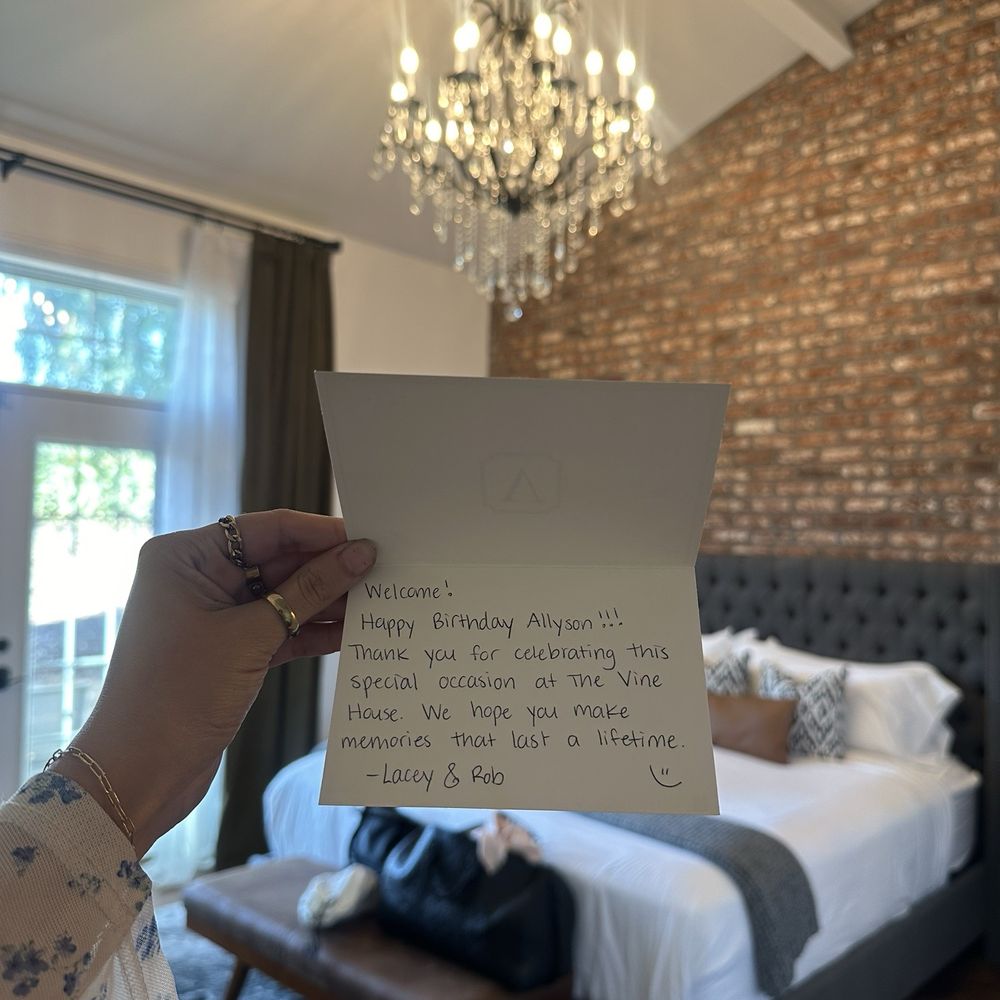 Welcome!
Happy Birthday Allyson!!!
Thank you for celebrating this
special occasion at The Vine
House. We hope you make
memories that last a lifetime.
-Lacey & Rob